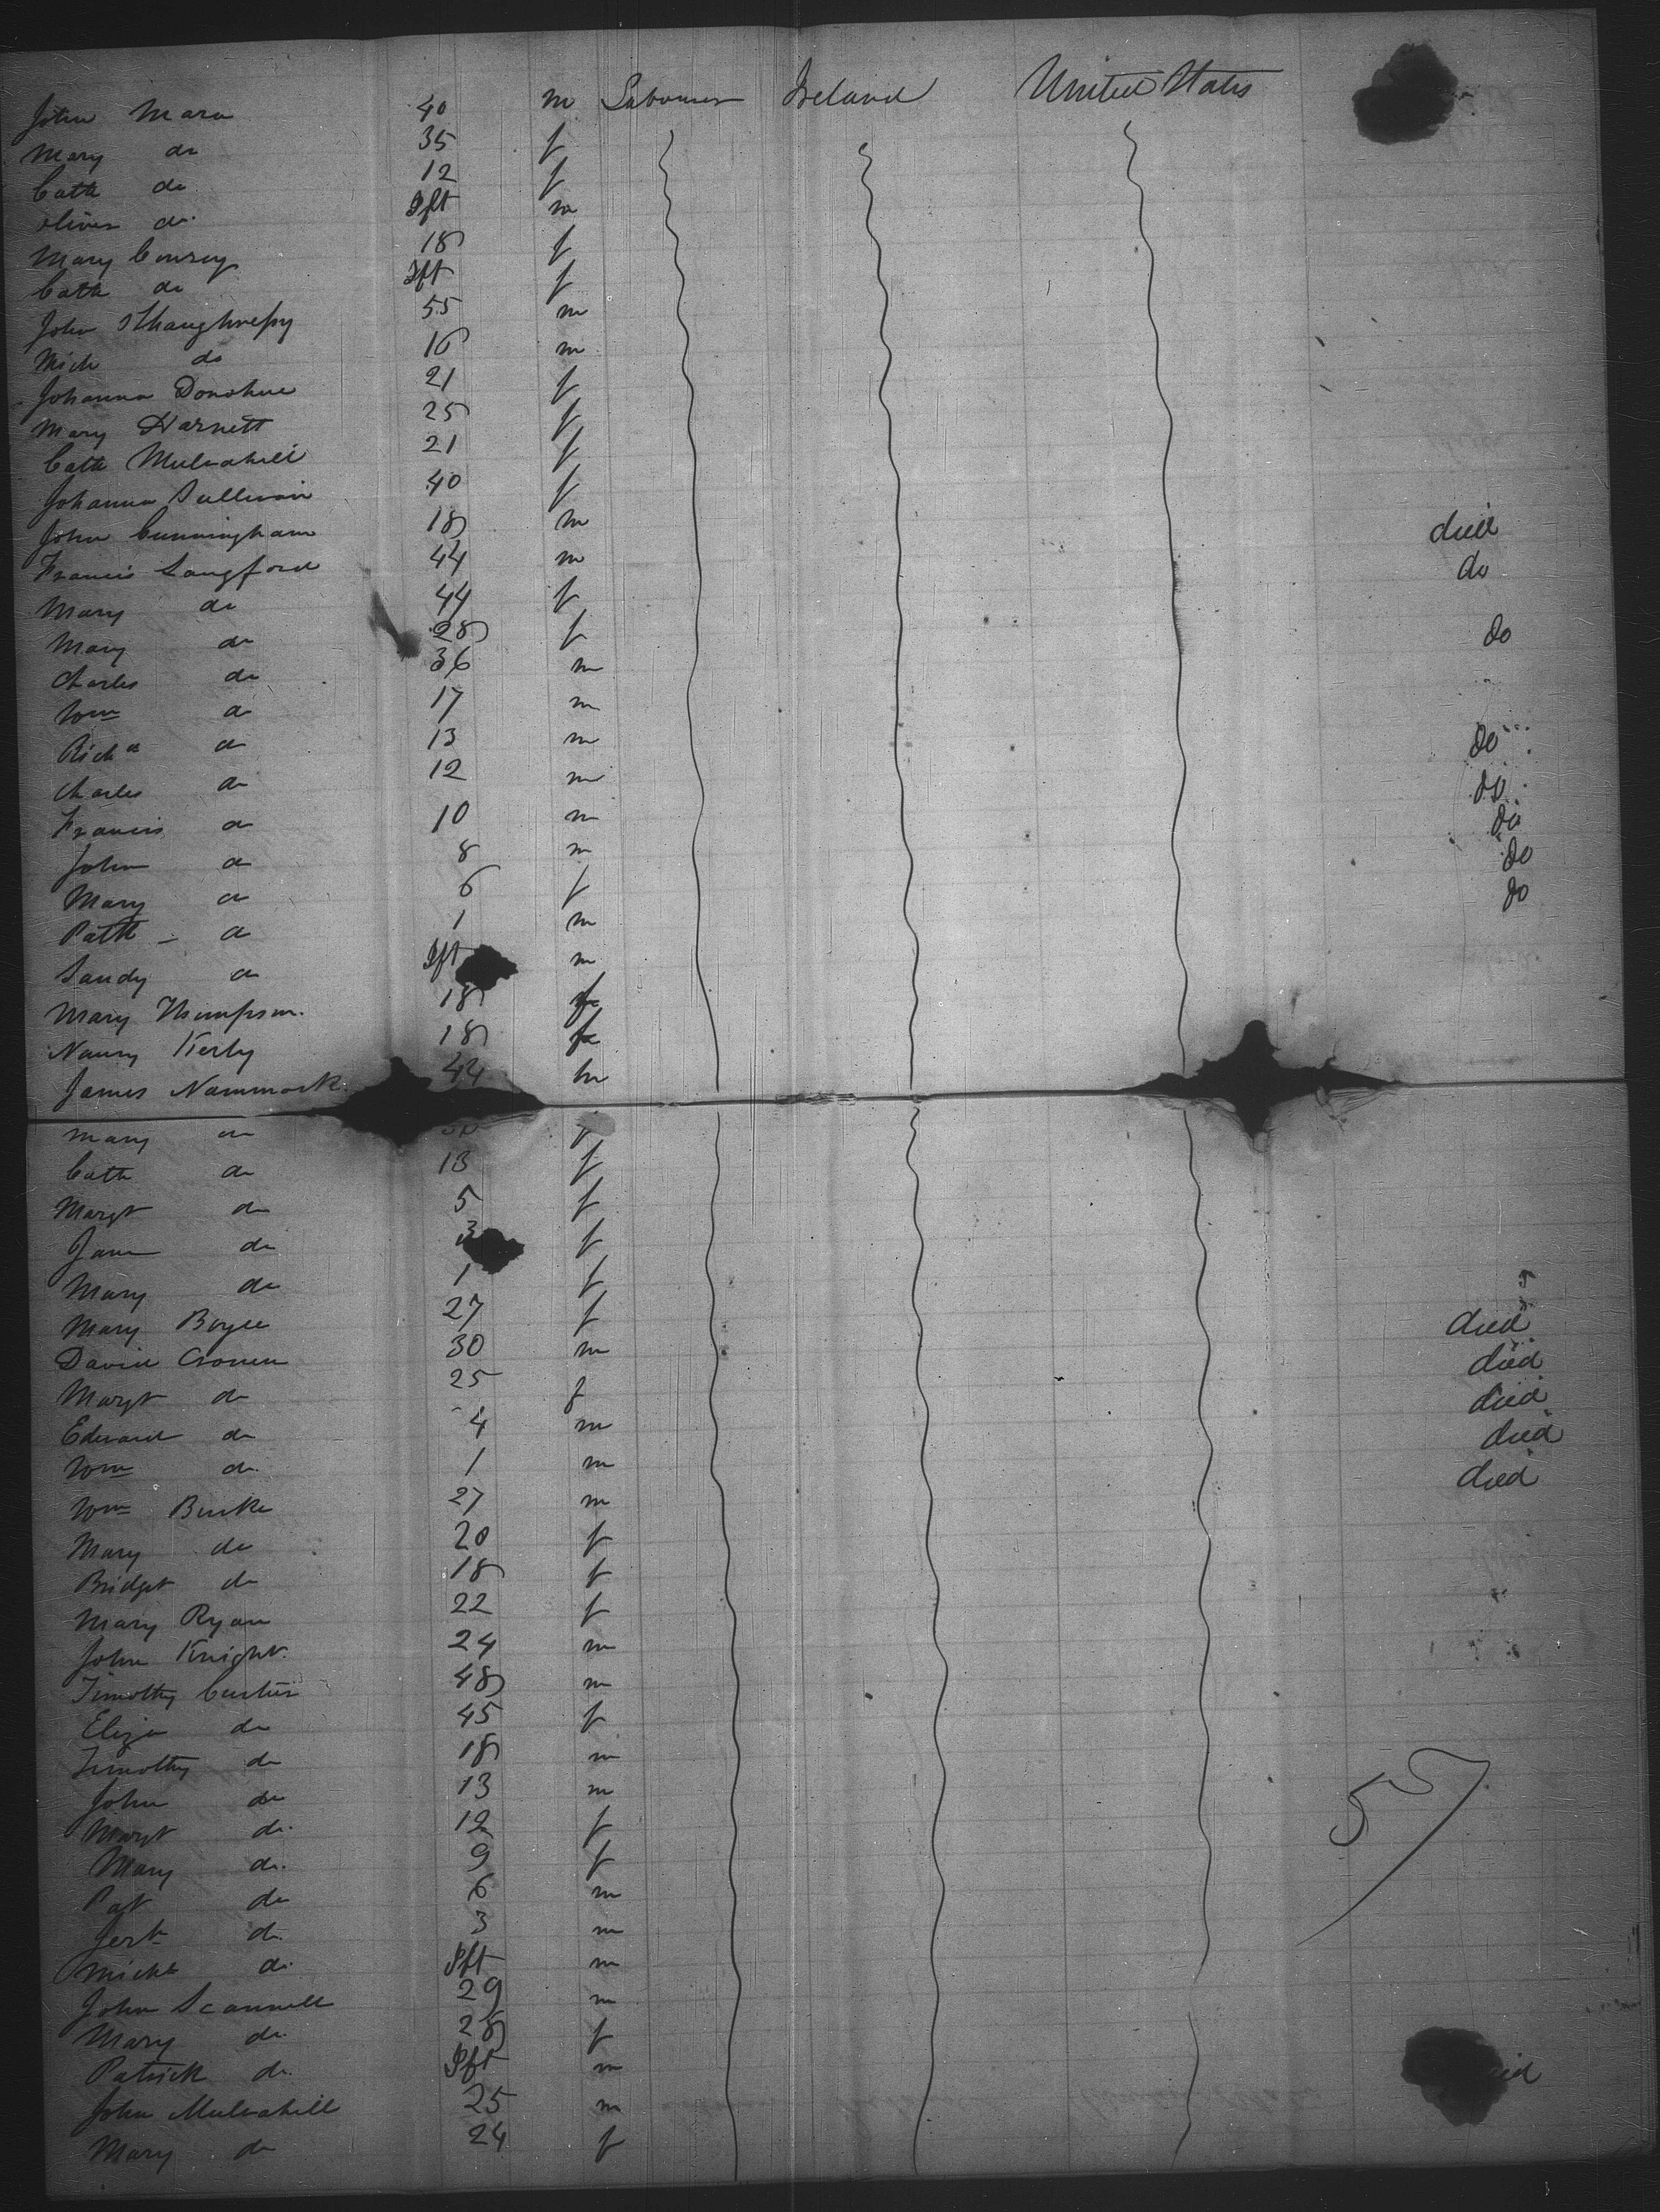 John Mara 40 m Labourer Ireland United States
Mary do 35 f
Cath do 12 f
Oliver do 9ft m
Mary Conroy 18 f
Cath do Ift f
John OShaughnessy 55 m
Mich do 16 m
Johanna Donohue 21 f
Mary Harnett 25 f
Cath Mulvahill 21 f
Johanna Sullivan 40 f
John Cunningham 18 m died
Francis Langford 44 m do
Mary do 44 f
Mary do 28 f do
Charles do 36 m
Wm do 17 m
Richd do 13 m do
Charles do 12 m do
Francis do 10 m do
John do 8 m do
Mary do 6 f do
Patk - do 1 m
Sandy do Ift m
Mary Thompson. 18 f
Nancy Kerby 18 f
James Nammack. 44 m
Mary do f
Cath do 13 f
Margt do 5 f
Jane do 3 f
Mary do 1 f
Mary Boyce 27 f died
David Cronen 30 m died
Margt do 25 f died
Edward do 4 m died
Wm do. 1 m died
Wm Burke 27 m
Mary do 20 f
Bridget do 18 f
Mary Ryan 22 f
John Knight. 24 m
Timothy Curtin 48 m
Eliza do 45 f
Timothy do 18 m
John do 13 m
Margt do. 12 f
Mary do. 9 f
Pat do 6 m
Jerh do. 3 m
Michl do. Ift m
John Scannell 29 m
Mary do. 28 f
Patrick do. Ift m
John Mulvahill 25 m
Mary do 24 f